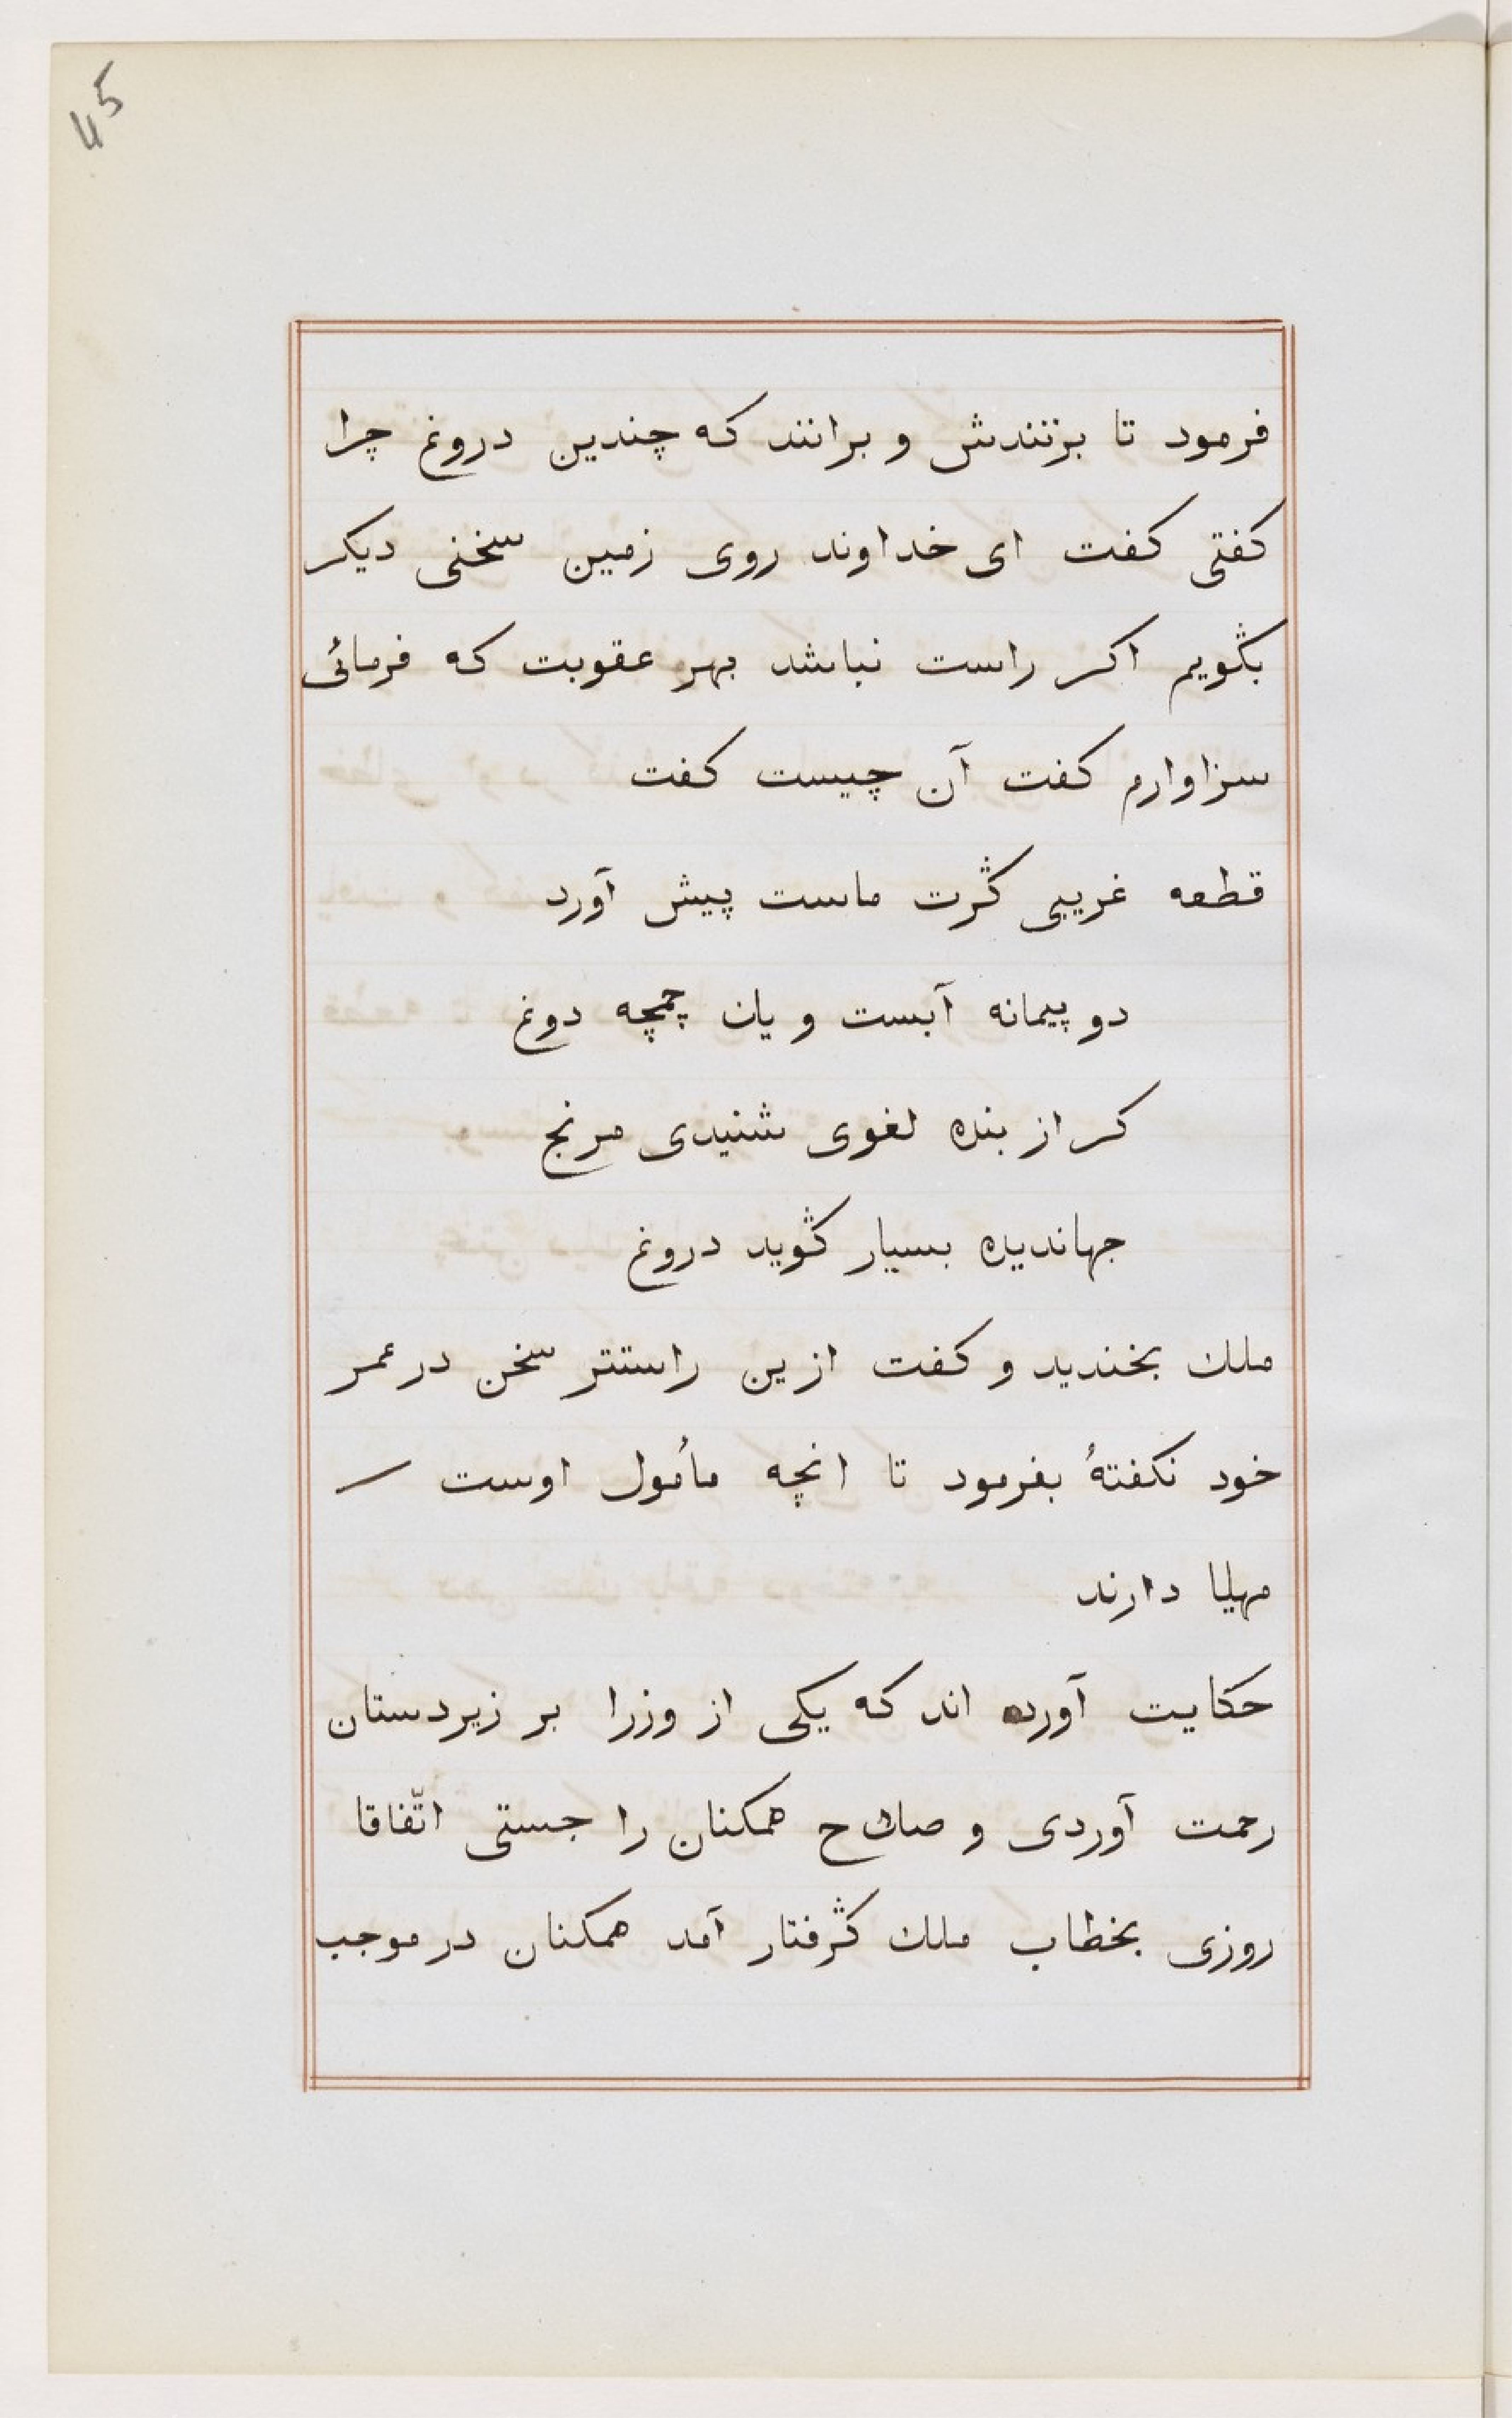 45
فرمود تا بزنندش و برانند که چندین دروغ چرا
کفتی کفت ای خداوند روی زمین سخنی دیکر
بڭویم اکر راست نباشد بهر عقوبت که فرمائی
سزاوارم کفت آن چیست کفت
قطعه غریبی ڭرت ماست پیش آورد
دو پیمانه آبست و یك چمچه دوغ
کر از بنده لغوی شنیدی مرنج
جهاندیده بسیار ڭوید دروغ
ملك بخندید و کفت ازین راستتر سخن در عمر
خود نکفتهٔ بفرمود تا انچه مأمول اوست
مهیا دارند
حکایت آورده اند که یکی از وزرا بر زیردستان
رحمت آوردی و صلاح همکنان را جستی اتّفاقا
روزی بخطاب ملك ڭرفتار آمد همکنان در موجب